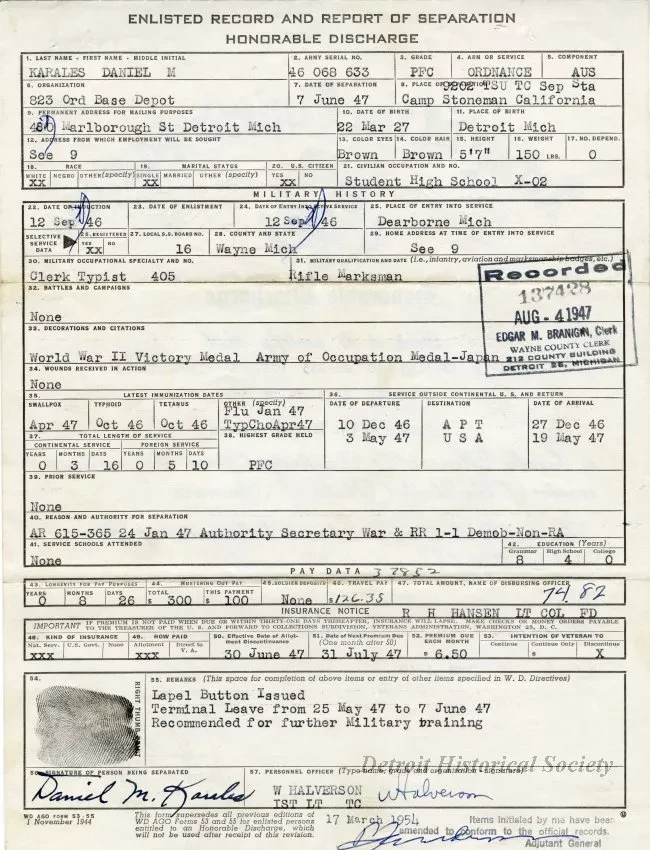 ENLISTED RECORD AND REPORT OF SEPARATION
HONORABLE DISCHARGE
1. LAST NAME - FIRST NAME - MIDDLE INITIAL 2. ARMY SERIAL NO. 3. GRADE 4. ARM OR SERVICE 5. COMPONENT
KARALES DANIEL M 46 068 633 PFC ORDNANCE AUS
6. ORGANIZATION 7. DATE OF SEPARATION 8. PLACE OF SEPARATION 9202 TSU TC Sep Sta
823 Ord Base Depot 7 June 47 Camp Stoneman California
9. PERMANENT ADDRESS FOR MAILING PURPOSES 10. DATE OF BIRTH 11. PLACE OF BIRTH
Marlborough St Detroit Mich 22 Mar 27 Detroit Mich
12. ADDRESS FROM WHICH EMPLOYMENT WILL BE SOUGHT 13. COLOR EYES 14. COLOR HAIR 15. HEIGHT 16. WEIGHT 17. NO. DEPEND.
See 9 Brown Brown 5'7" 150 LBS. 0
18. RACE 19. MARITAL STATUS 20. U.S. CITIZEN 21. CIVILIAN OCCUPATION AND NO.
WHITE NEGRO OTHER (specify) SINGLE MARRIED OTHER (specify) YES NO
xx xx xx Student High School X-02
MILITARY HISTORY
22. DATE OF INDUCTION 23. DATE OF ENLISTMENT 24. DATE OF ENTRY INTO ACTIVE SERVICE 25. PLACE OF ENTRY INTO SERVICE
12 Sep 46 12 Sep 46 Dearborne Mich
SELECTIVE SERVICE DATA 26. REGISTERED YES NO 27. LOCAL S.S. BOARD NO. 28. COUNTY AND STATE 29. HOME ADDRESS AT TIME OF ENTRY INTO SERVICE
xx 16 Wayne Mich See 9
30. MILITARY OCCUPATIONAL SPECIALTY AND NO. 31. MILITARY QUALIFICATION AND DATE (i.e., infantry, aviation and marksmanship badges, etc.)
Clerk Typist 405 Rifle Marksman
Recorded
137428
AUG - 4 1947
EDGAR M. BRANIGIN, Clerk
WAYNE COUNTY CLERK
212 COUNTY BUILDING
DETROIT 26, MICHIGAN
32. BATTLES AND CAMPAIGNS
None
33. DECORATIONS AND CITATIONS
World War II Victory Medal Army of Occupation Medal-Japan
34. WOUNDS RECEIVED IN ACTION
None
35. LATEST IMMUNIZATION DATES 36. SERVICE OUTSIDE CONTINENTAL U.S. AND RETURN
SMALLPOX TYPHOID TETANUS OTHER (specify) DATE OF DEPARTURE DESTINATION DATE OF ARRIVAL
Flu Jan 47
Apr 47 Oct 46 Oct 46 TypChoApr47 10 Dec 46 A P T 27 Dec 46
37. TOTAL LENGTH OF SERVICE 38. HIGHEST GRADE HELD 3 May 47 U S A 19 May 47
CONTINENTAL SERVICE FOREIGN SERVICE
YEARS MONTHS DAYS YEARS MONTHS DAYS
0 3 16 0 5 10 PFC
39. PRIOR SERVICE
None
40. REASON AND AUTHORITY FOR SEPARATION
AR 615-365 24 Jan 47 Authority Secretary War & RR 1-1 Demob-Non-RA
41. SERVICE SCHOOLS ATTENDED 42. EDUCATION (Years)
Grammar High School College
None 8 4 0
PAY DATA 37852
43. LONGEVITY FOR PAY PURPOSES 44. MUSTERING OUT PAY 45. SOLDIER DEPOSITS 46. TRAVEL PAY 47. TOTAL AMOUNT, NAME OF DISBURSING OFFICER
YEARS MONTHS DAYS TOTAL THIS PAYMENT
0 8 26 $ 300 $ 100 None $126.35 74.82
INSURANCE NOTICE R H HANSEN LT COL FD
IMPORTANT IF PREMIUM IS NOT PAID WHEN DUE OR WITHIN THIRTY-ONE DAYS THEREAFTER, INSURANCE WILL LAPSE. MAKE CHECKS OR MONEY ORDERS PAYABLE
TO THE TREASURER OF THE U. S. AND FORWARD TO COLLECTIONS SUBDIVISION, VETERANS ADMINISTRATION, WASHINGTON 25, D. C.
48. KIND OF INSURANCE 49. HOW PAID 50. Effective Date of Allotment Discontinuance 51. Date of Next Premium Due (One month after 50) 52. PREMIUM DUE EACH MONTH 53. INTENTION OF VETERAN TO
Nat. Serv. U.S. Govt. None Allotment Direct to V. A. Continue Continue Only Discontinue
xxx xxx 30 June 47 31 July 47 $ 6.50 $ X
54. 55. REMARKS (This space for completion of above items or entry of other items specified in W. D. Directives)
RIGHT THUMB PRINT
Lapel Button Issued
Terminal Leave from 25 May 47 to 7 June 47
Recommended for further Military training
Detroit Historical Society
56. SIGNATURE OF PERSON BEING SEPARATED 57. PERSONNEL OFFICER (Type name, grade and organization - signature)
Daniel M. Karales W HALVERSON W Halverson
1ST LT TC
WD AGO FORM 53-55
1 November 1944
This form supersedes all previous editions of
WD AGO Forms 53 and 55 for enlisted persons
entitled to an Honorable Discharge, which
will not be used after receipt of this revision.
17 March 1954 Items initialed by me have been
amended to conform to the official records.
Adjutant General